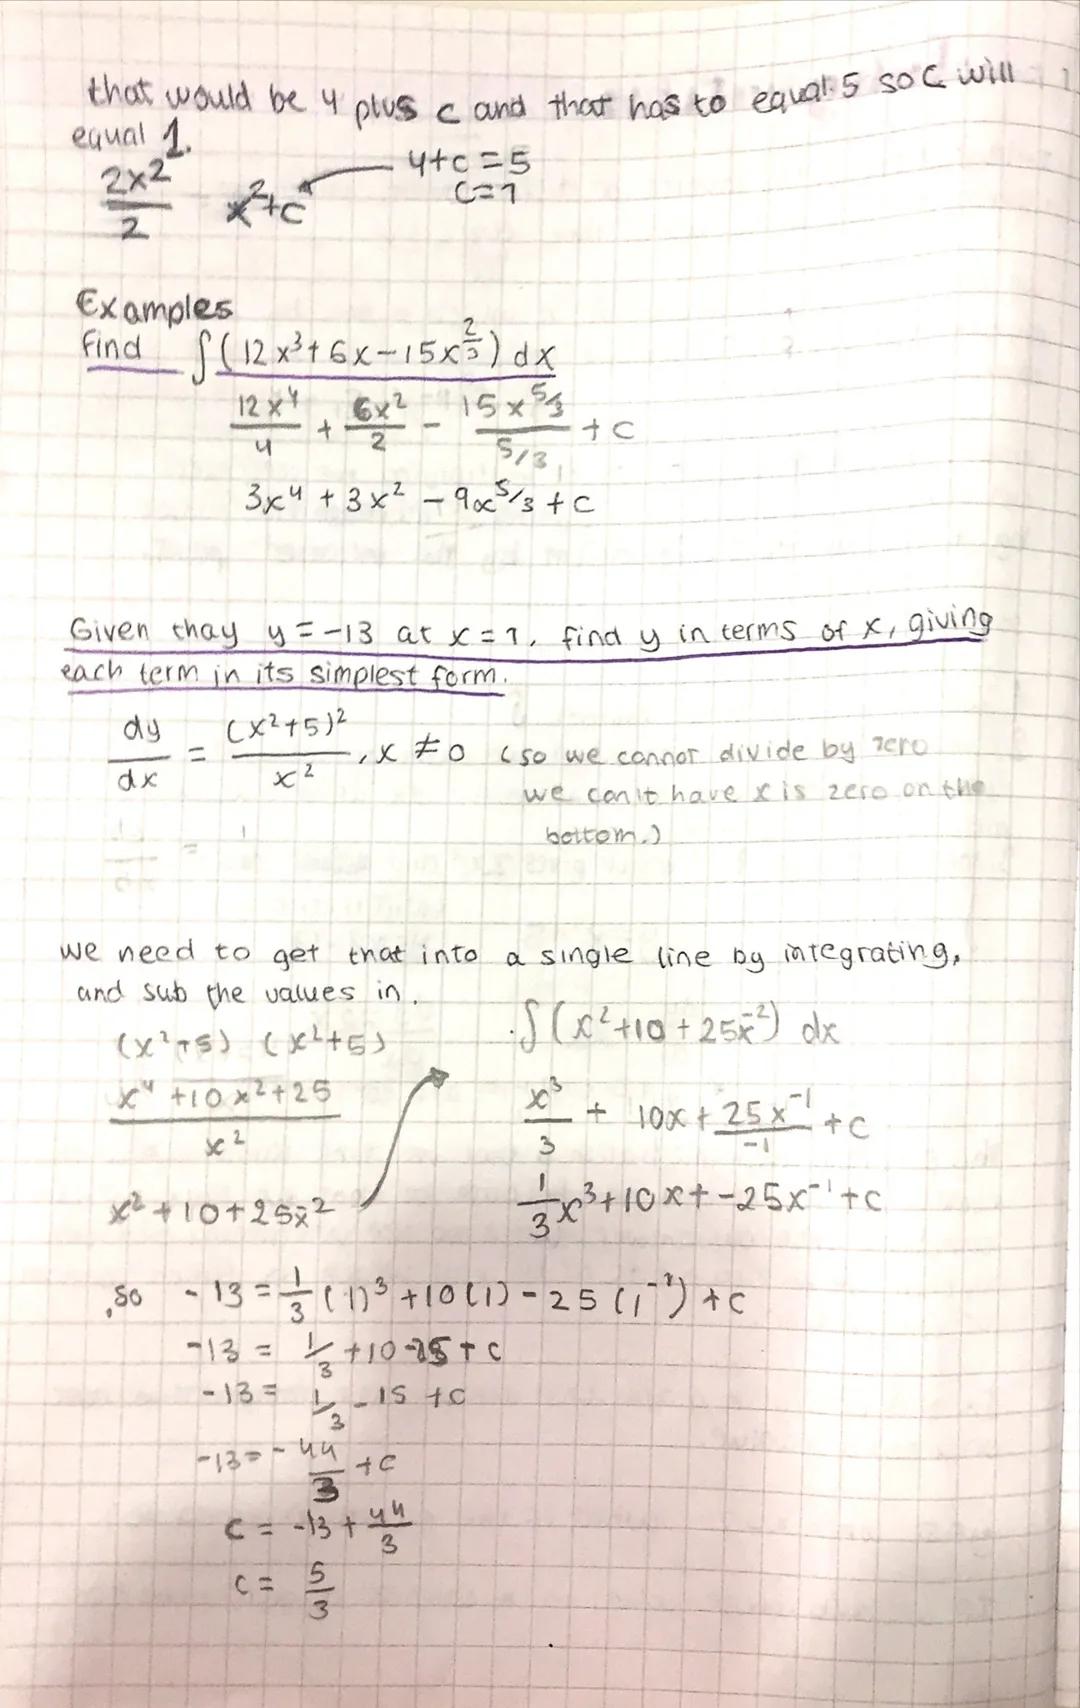 that would be 4 plus c and that has to equal 5 so C will
equal 1.
2x2/2 x²+c 4+c=5
C=1
Examples
Find ∫(12x³+6x-15x^2/3) dx
12x⁴/4 + 6x²/2 - 15x^5/3 / 5/3 + C
3x⁴ + 3x² - 9x^5/3 + C
Given thay y = -13 at x = 1, find y in terms of x, giving
each term in its simplest form.
dy/dx = (x²+5)²/x², x ≠ 0 (so we cannot divide by zero
we can't have x is zero on the
bottom.)
we need to get that into a single line by integrating,
and sub the values in.
(x²+5) (x²+5)
x⁴+10x²+25 / x²
x²+10+25x⁻²
∫(x²+10+25x⁻²) dx
x³/3 + 10x + 25x⁻¹/-1 + C
1/3x³+10x+-25x⁻¹+C
so -13 = 1/3(1)³+10(1)-25(1⁻¹)+C
-13 = 1/3+10-25+C
-13 = 1/3-15+C
-13 = -44/3+C
C = -13+44/3
C = 5/3